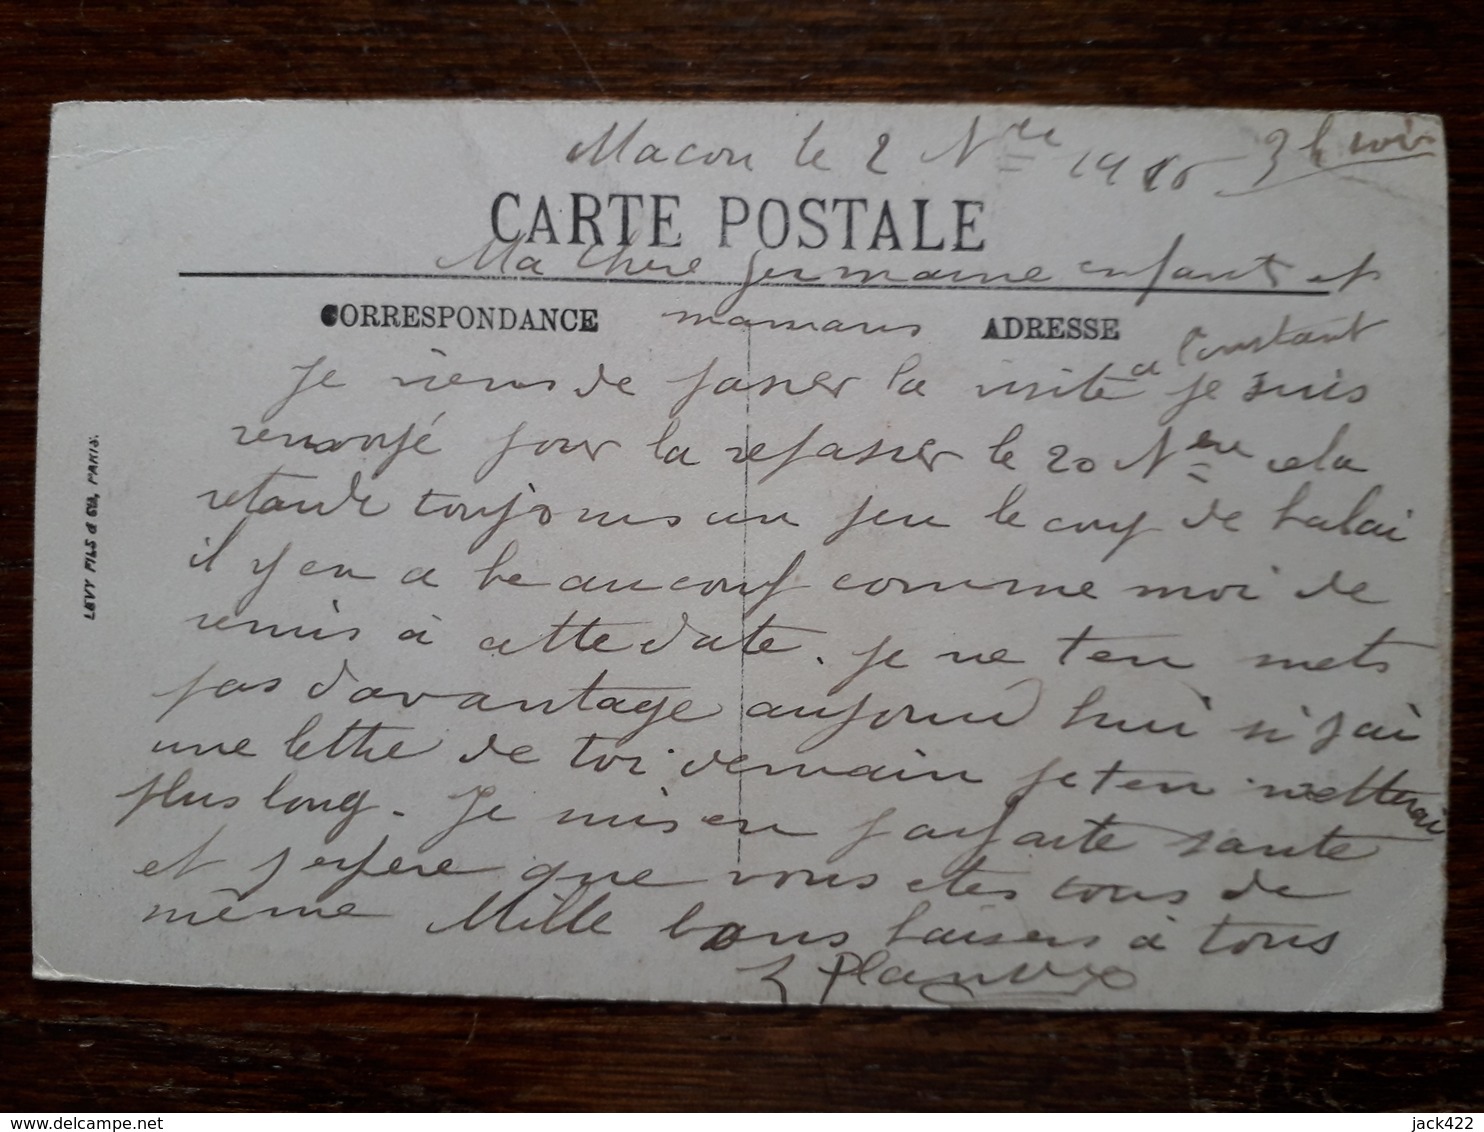 Macon le 2 Nbre 1916 3h soir
CARTE POSTALE
Ma chere germaine enfants et
CORRESPONDANCE mamans ADRESSE
Je viens de passer la visite a l'instant je suis
renvoyé pour la repasser le 20 Nbre cela
retarde toujours un peu le coup de balai
il y en a beaucoup comme moi de
remis à cette date. Je ne ten mets
pas davantage aujourd hui si j'ai
une lettre de toi demain je ten metterai
plus long. Je suis en parfaite sante
et j espere que vous etes tous de
même Mille bons baisers à tous
LEVY FILS & Cie, PARIS.
delcampe.net
jack422